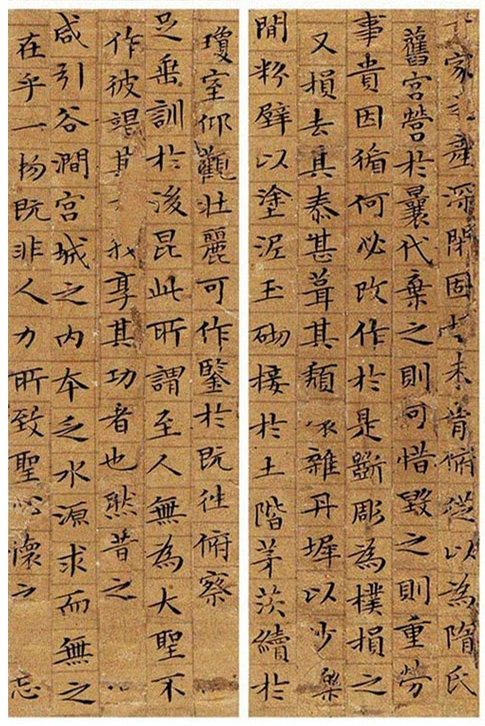 家之產深閉固未肯俯從以為隋氏
舊宮營於曩代棄之則可惜毀之則重勞
事貴因循何必改作於是斲彫為樸損之
又損去其泰甚葺其頹雜丹墀以
間粉壁以塗泥玉砌接於土階茅茨續於
瓊室仰觀壯麗可作鑒於既往俯察
足垂訓於後昆此所謂至人無為大聖不
作彼竭其我享其功者也然昔之
咸引谷澗宮城之內本乏水源求而無之
在乎一物既非人力所致聖心懷之忘